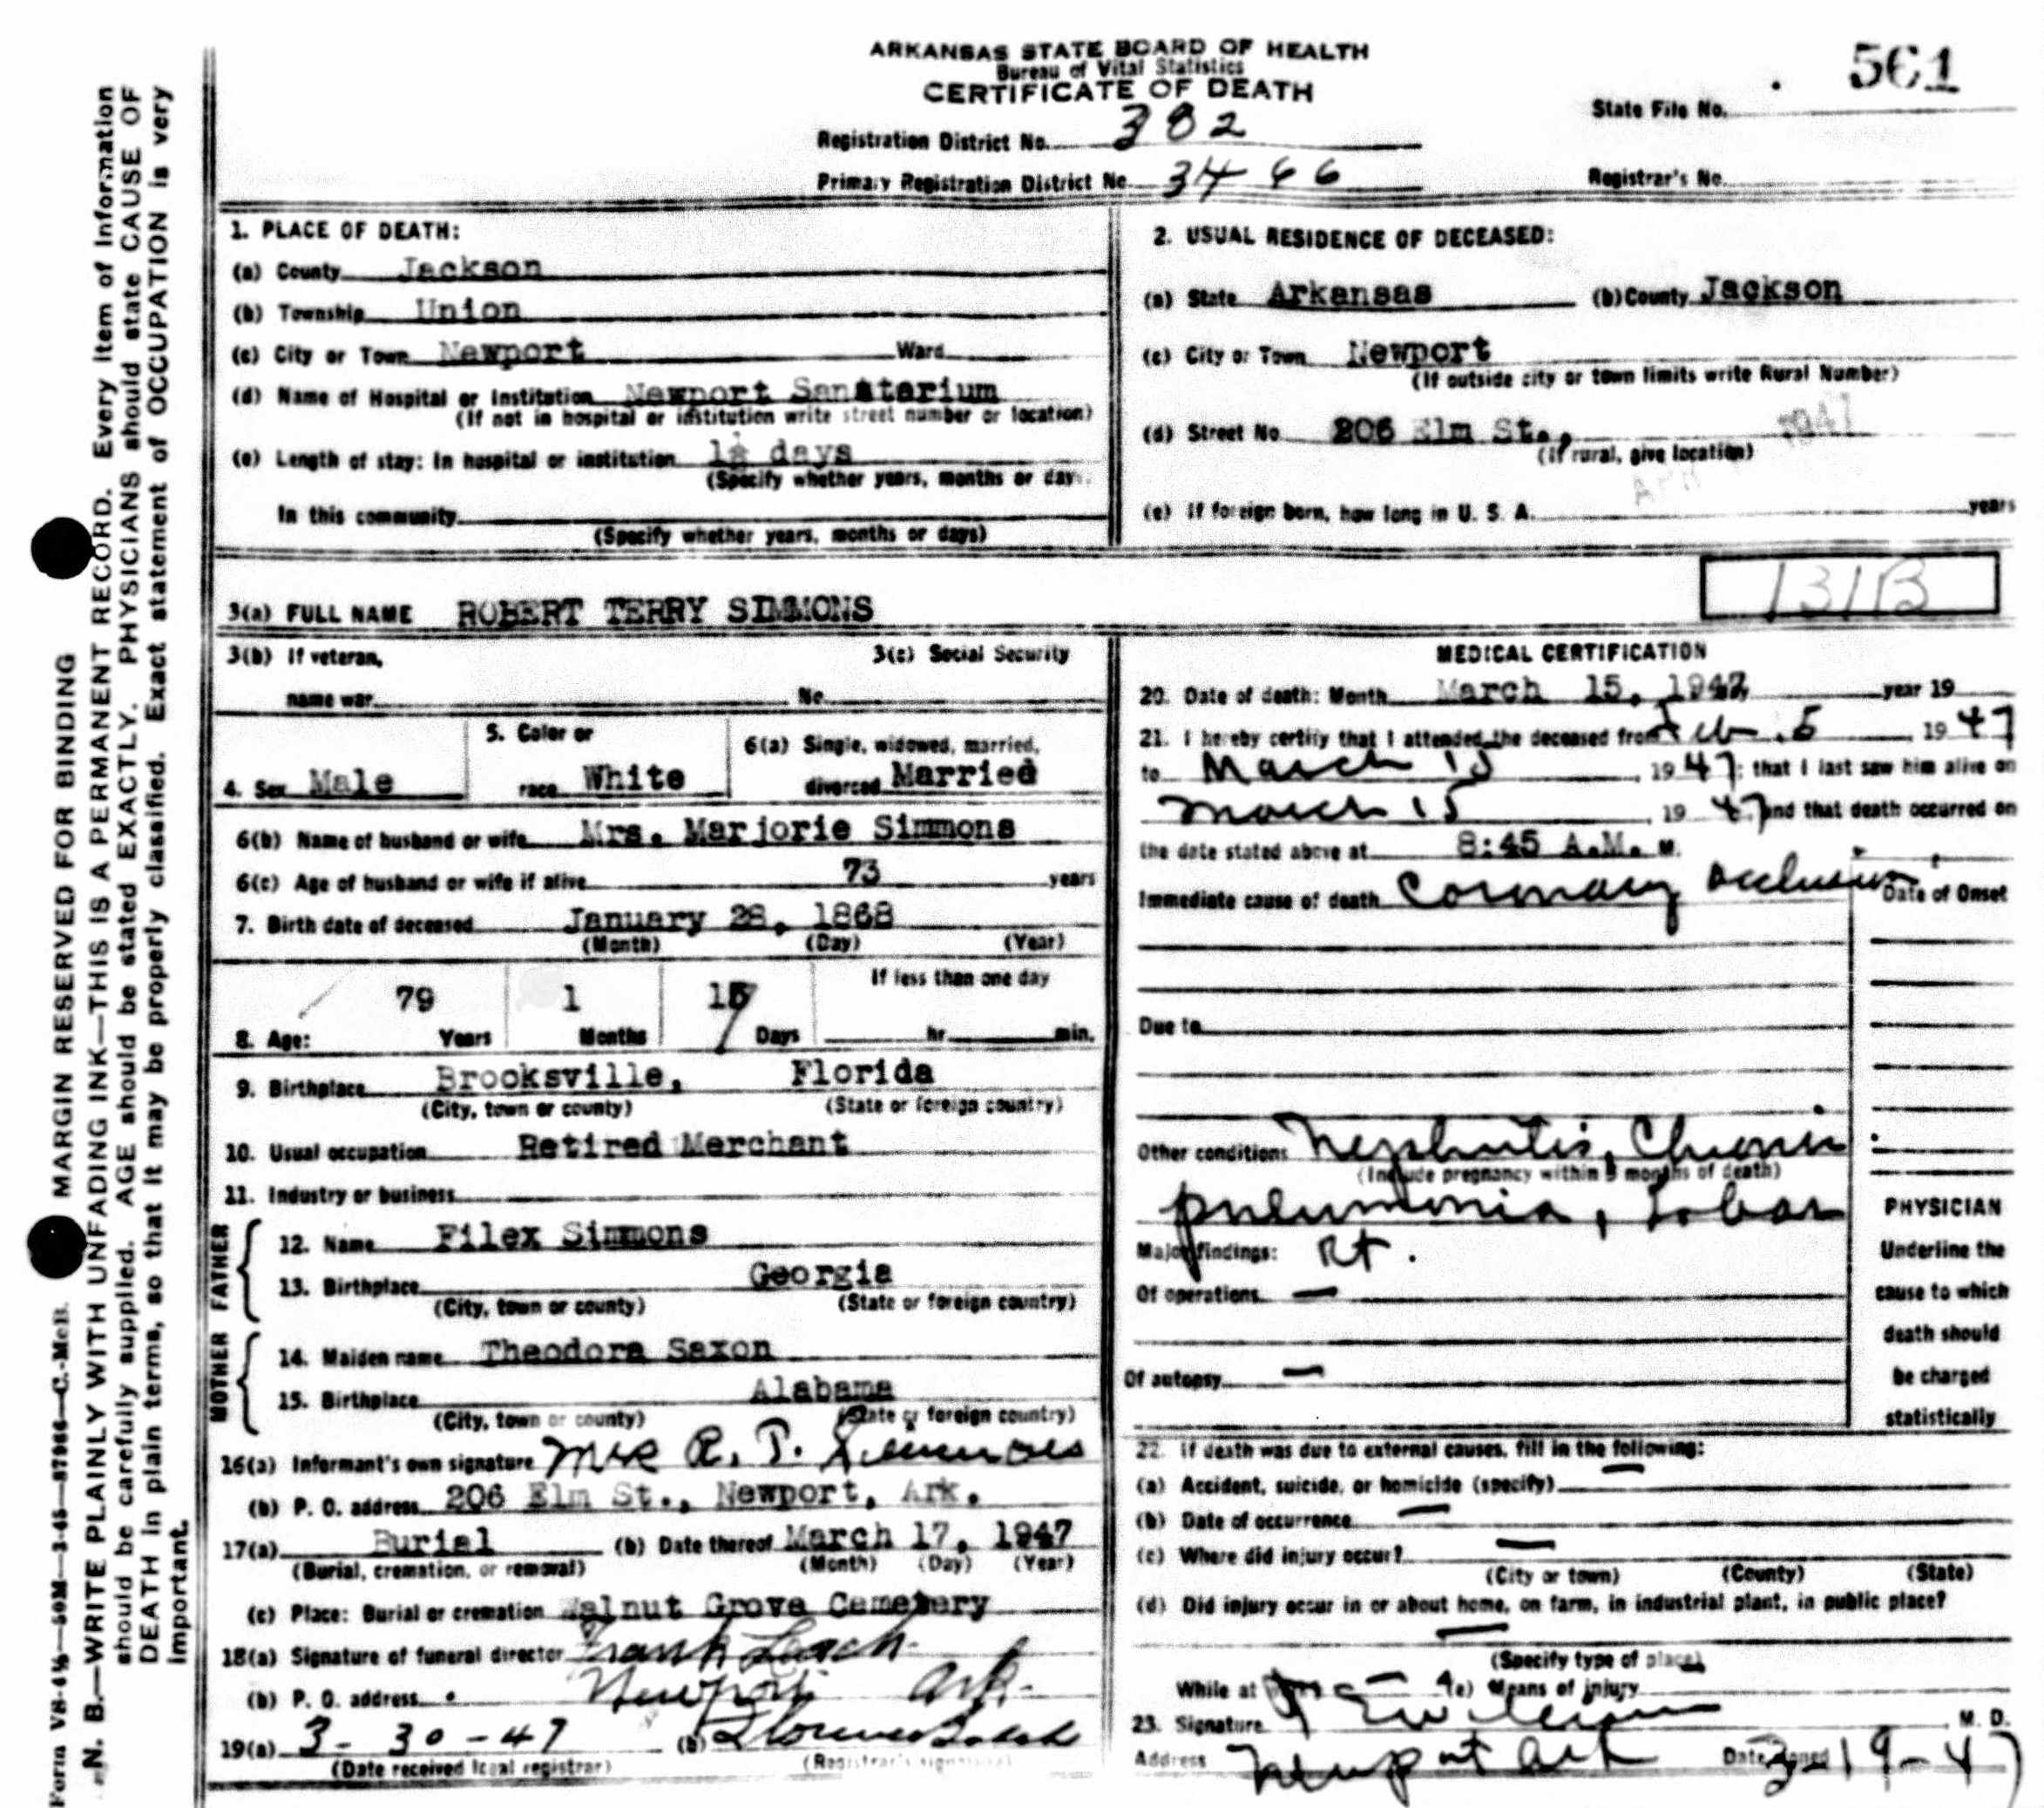 ARKANSAS STATE BOARD OF HEALTH
Bureau of Vital Statistics
CERTIFICATE OF DEATH
561
State File No.
Registration District No. 382
Primary Registration District No. 3466
Registrar's No.
1. PLACE OF DEATH:
(a) County Jackson
(b) Township Union
(c) City or Town Newport Ward
(d) Name of Hospital or Institution Newport Sanatarium
(If not in hospital or institution write street number or location)
(e) Length of stay: In hospital or institution days
(Specify whether years, months or days.
In this community
(Specify whether years, months or days)
2. USUAL RESIDENCE OF DECEASED:
(a) State Arkansas (b) County Jackson
(c) City or Town Newport
(If outside city or town limits write Rural Number)
(d) Street No 206 Elm St.,
(If rural, give location)
APR 1947
(e) If foreign born, how long in U. S. A. years
3(a) FULL NAME ROBERT TERRY SIMMONS
131B
3(b) If veteran,
name war
3(c) Social Security
No.
4. Sex Male
5. Color or
race White
6(a) Single, widowed, married,
divorced Married
6(b) Name of husband or wife Mrs. Marjorie Simmons
6(c) Age of husband or wife if alive 73 years
7. Birth date of deceased January 28, 1868
(Month) (Day) (Year)
8. Age: 79 Years 1 Months Days
If less than one day
hr. min.
9. Birthplace Brooksville, Florida
(City, town or county) (State or foreign country)
10. Usual occupation Retired Merchant
11. Industry or business
FATHER
12. Name Filex Simmons
13. Birthplace Georgia
(City, town or county) (State or foreign country)
MOTHER
14. Maiden name Theodora Saxon
15. Birthplace Alabama
(City, town or county) (State or foreign country)
16(a) Informant's own signature Mrs R. T. Simmons
(b) P. O. address 206 Elm St., Newport, Ark.
17(a) Burial (b) Date thereof March 17, 1947
(Burial, cremation, or removal) (Month) (Day) (Year)
(c) Place: Burial or cremation Walnut Grove Cemetery
18(a) Signature of funeral director Frank Leach
(b) P. O. address Newport Ark.
19(a) 3-30-47 (b)
(Date received local registrar) (Registrar's signature)
MEDICAL CERTIFICATION
20. Date of death: Month March 15, 1947, year 19
21. I hereby certify that I attended the deceased from Feb. 5, 1947
to March 15, 1947; that I last saw him alive on
March 15, 1947 and that death occurred on
the date stated above at 8:45 A.M. M.
Immediate cause of death Coronary occlusion Date of Onset
Due to
Other conditions Nephritis, Chronic
(Include pregnancy within 3 months of death)
pneumonia, Lobar
Major findings: Rt.
Of operations —
Of autopsy —
PHYSICIAN
Underline the
cause to which
death should
be charged
statistically
22. If death was due to external causes, fill in the following:
(a) Accident, suicide, or homicide (specify) —
(b) Date of occurrence —
(c) Where did injury occur? —
(City or town) (County) (State)
(d) Did injury occur in or about home, on farm, in industrial plant, in public place?
—
(Specify type of place)
While at (e) Means of injury
23. Signature M. D.
Address Newport Ark Date signed 3-19-47
MARGIN RESERVED FOR BINDING
N. B.—WRITE PLAINLY WITH UNFADING INK—THIS IS A PERMANENT RECORD. Every item of information
should be carefully supplied. AGE should be stated EXACTLY. PHYSICIANS should state CAUSE OF
DEATH in plain terms, so that it may be properly classified. Exact statement of OCCUPATION is very
important.